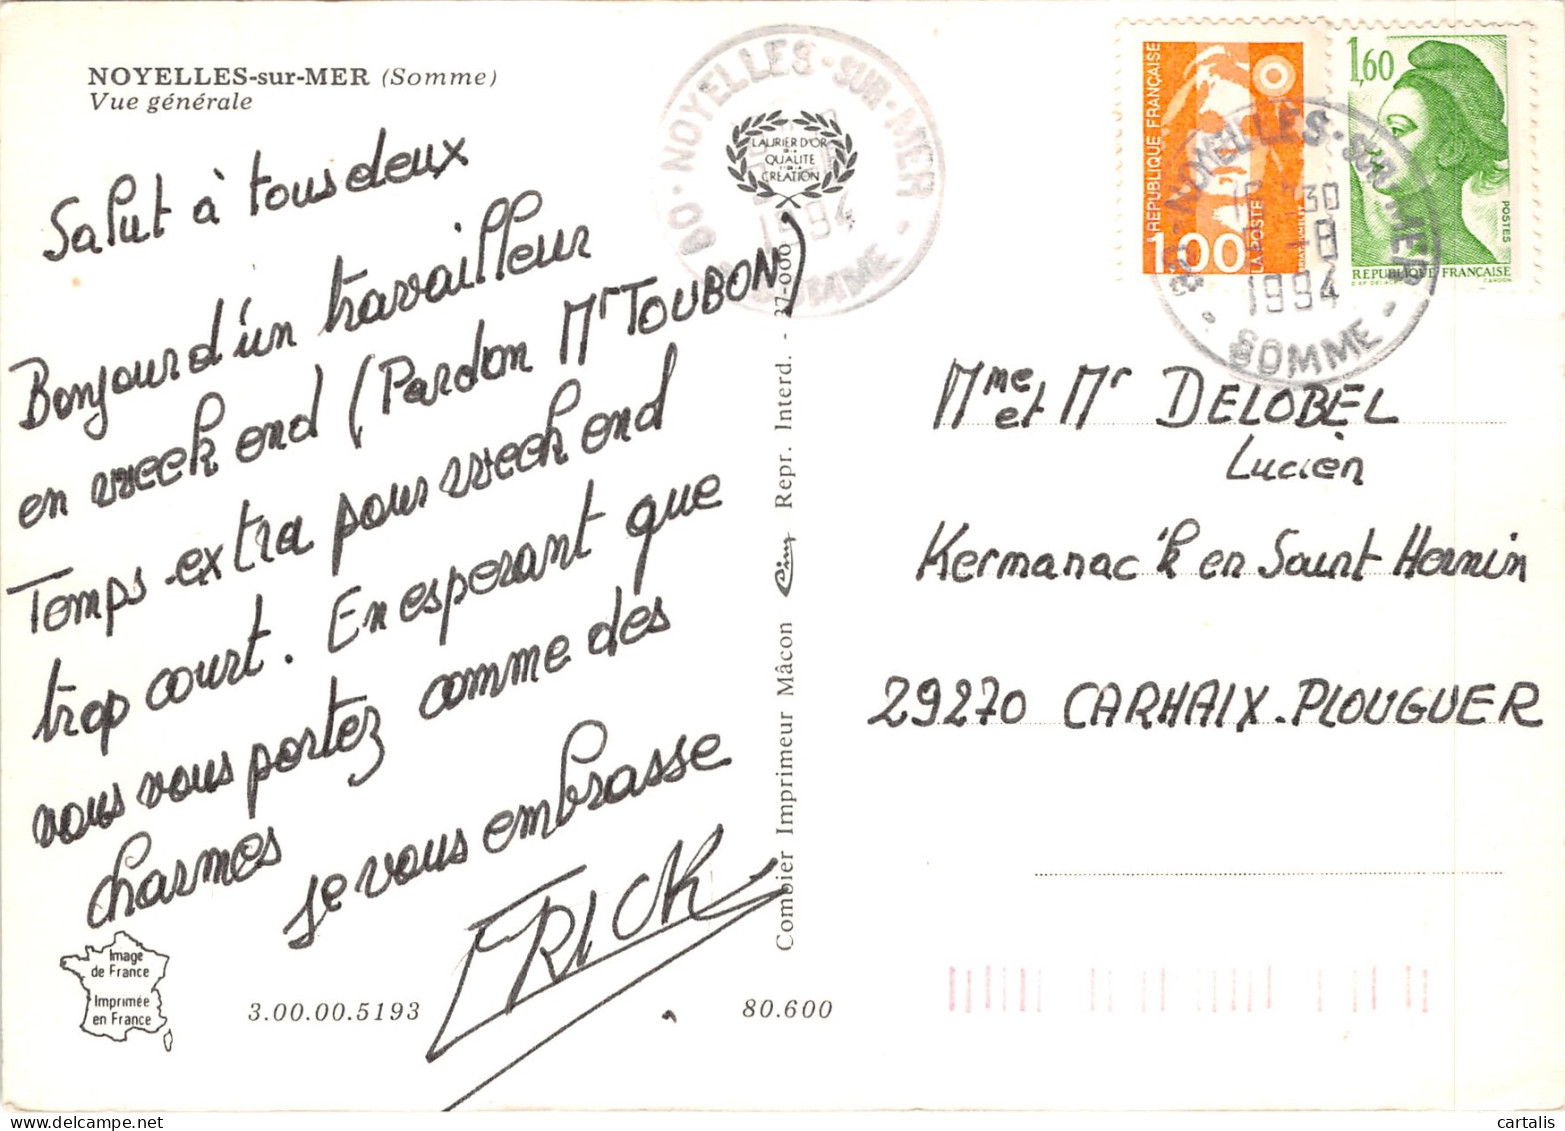 NOYELLES-sur-MER (Somme)
Vue générale
Salut à tous deux
Bonjour d'un travailleur
en week end (Pardon Mr TOUBON)
Temps extra pour week end
trop court. En esperant que
vous vous portez comme des
charmes
Je vous embrasse
ERICK
Image
de France
Imprimée
en France
3.00.00.5193
80.600
Combier Imprimeur Mâcon Cim Repr. Interd. - 37-000
LAURIER D'OR
DE LA
QUALITE
ET DE LA
CREATION
80 - NOYELLES-SUR-MER
1994
SOMME
RÉPUBLIQUE FRANÇAISE
1.00
LA POSTE
1,60
POSTES
REPUBLIQUE FRANÇAISE
80 - NOYELLES-SUR-MER
30
-8
1994
SOMME
Mme et Mr DELOBEL
Lucien
Kermanac'h en Saint Hernin
29270 CARHAIX-PLOUGUER
cartalis